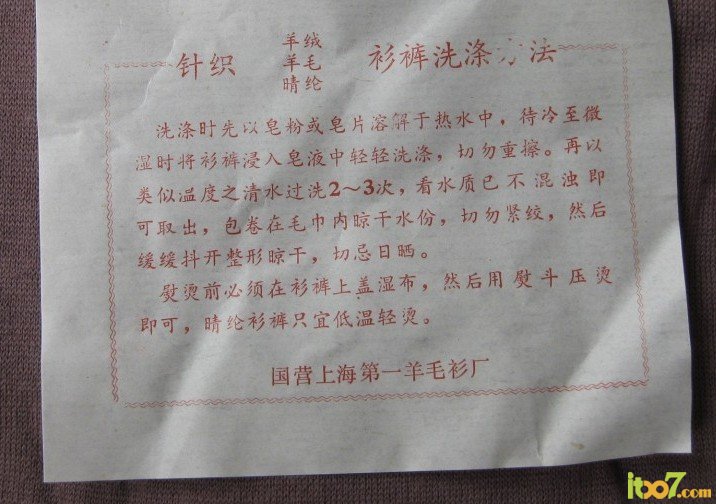 针织 羊绒 羊毛 晴纶 衫裤洗涤方法
洗涤时先以皂粉或皂片溶解于热水中，待冷至微
湿时将衫裤浸入皂液中轻轻洗涤，切勿重擦。再以
类似温度之清水过洗2～3次，看水质已不混浊即
可取出，包卷在毛巾内晾干水份，切勿紧绞，然后
缓缓抖开整形晾干，切忌日晒。
熨烫前必须在衫裤上盖湿布，然后用熨斗压烫
即可，晴纶衫裤只宜低温轻烫。
国营上海第一羊毛衫厂
itbo7.com